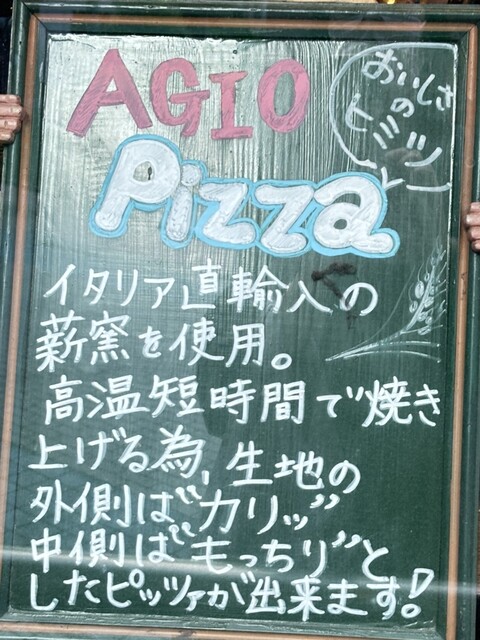 AGIO
おいしさ
の
ヒミツ
Pizza
イタリア直輸入の
薪窯を使用。
高温短時間で焼き
上げる為、生地の
外側は“カリッ”
中側は“もっちり”と
したピッツァが出来ます！